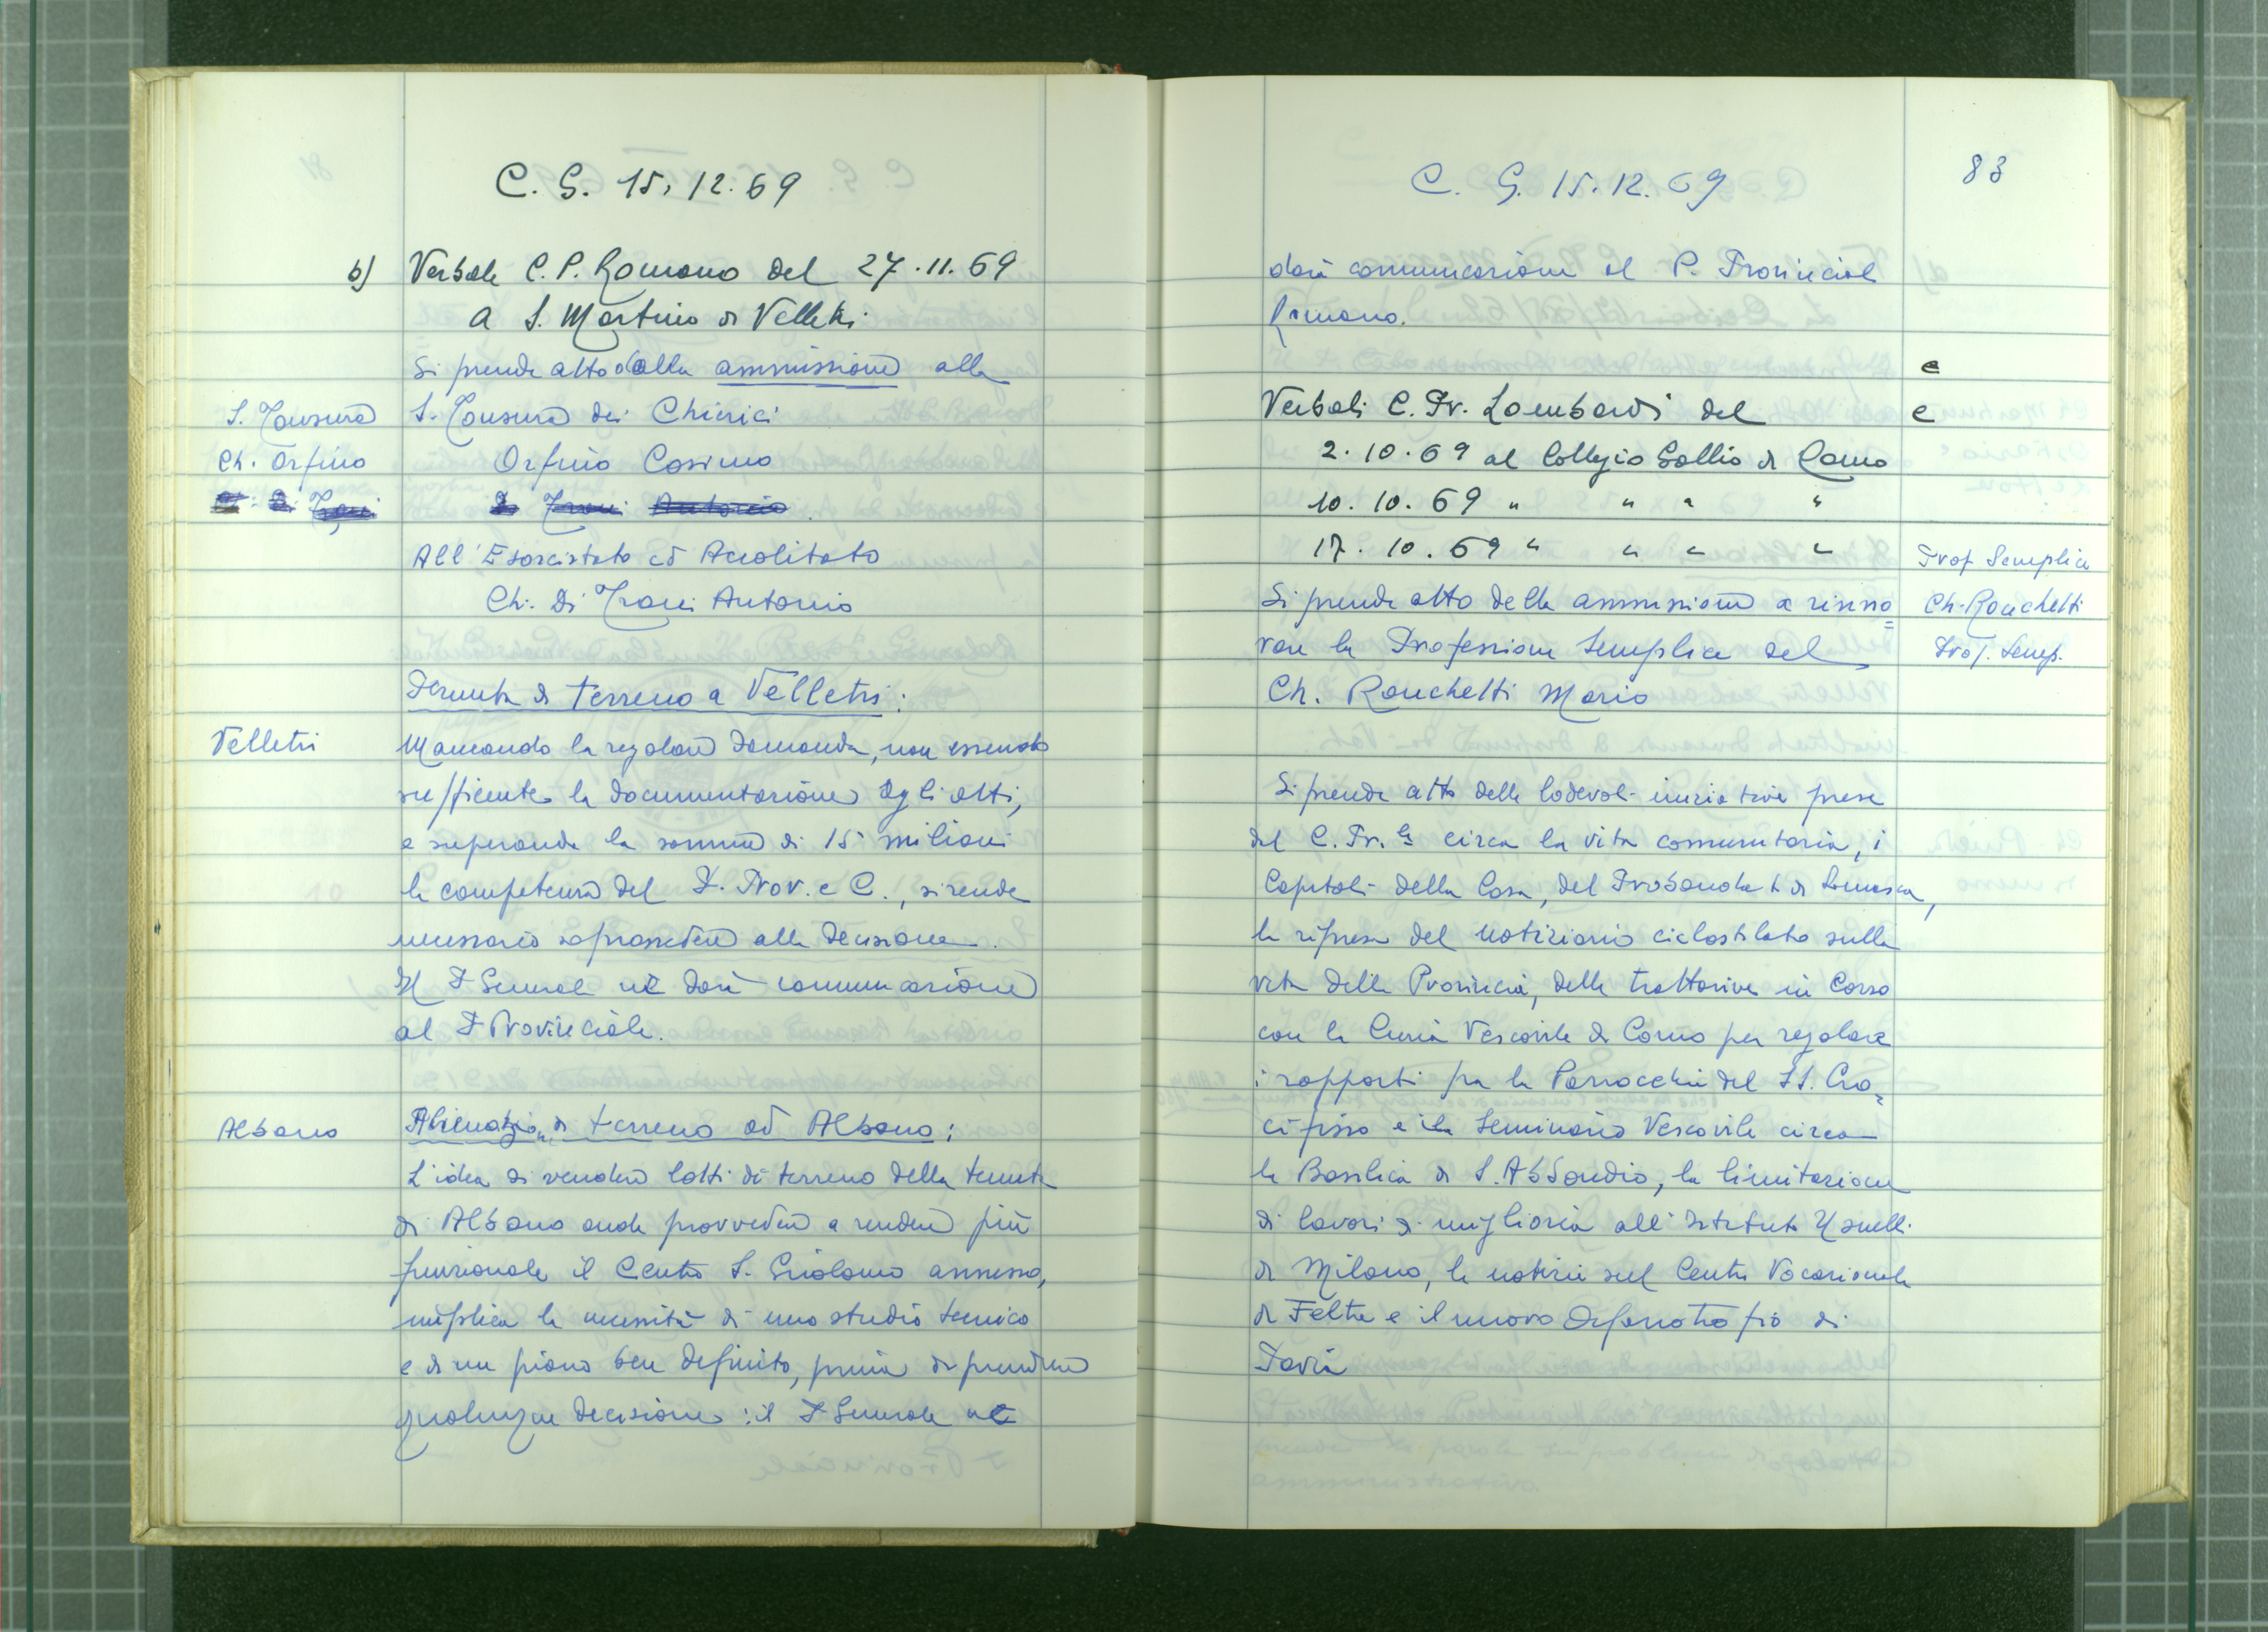 C. G. 15. 12. 69
b) Verbale C. P. Romano del 27.11.69
a S. Martino di Velletri
Si prende atto della ammissione alla
S. Tonsura S. Tonsura dei Chierici
Ch. Orfino Orfino Cosimo
Di Trani Di Trani Antonio
All'Esorcistato ed Accolitato
Ch. Di Trani Antonio
di terreno a Velletri:
Velletri Mancando la regolare domanda, non essendo
sufficiente la documentazione agli atti,
e superando la somma di 15 milioni
la competenza del P. Prov. e C., si rende
necessario soprassedere alla decisione.
Il P. Generale ne darà comunicazione
al P. Provinciale.
Albano Alienazione di terreno ad Albano:
L'idea di vendere lotti di terreno della tenuta
di Albano onde provvedere a rendere più
funzionale il Centro S. Girolamo annesso,
implica la necessità di uno studio tecnico
e di un piano ben definito, prima di prendere
qualunque decisione: il P. Generale ne
C. G. 15.12.69 83
darà comunicazione al P. Provinciale
Romano.
e
Verbali C. Pr. Lombardi del e
2.10.69 al Collegio Gallio di Como
10.10.69 " " " "
17.10.69 " " " "
Prof Semplice
Si prende atto della ammissione a rinno= Ch. Ronchetti
vare la Professione Semplice del Prof. Semp.
Ch. Ronchetti Mario
Si prende atto delle lodevoli iniziative prese
dal C. Pr.le circa la vita comunitaria, i
Capitoli della Casa, del Probandato di Somasca,
la ripresa del notiziario ciclostilato sulla
vita della Provincia, delle trattative in corso
con la Curia Vescovile di Como per regolare
i rapporti fra la Parrocchia del SS. Cro=
cifisso e il Seminario Vescovile circa
la Basilica di S. Abbondio, la limitazione
di lavori di miglioria all'Istituto Usuelli
di Milano, le notizie sul Centro Vocazionale
di Feltre e il nuovo Orfanotrofio di
Pavia